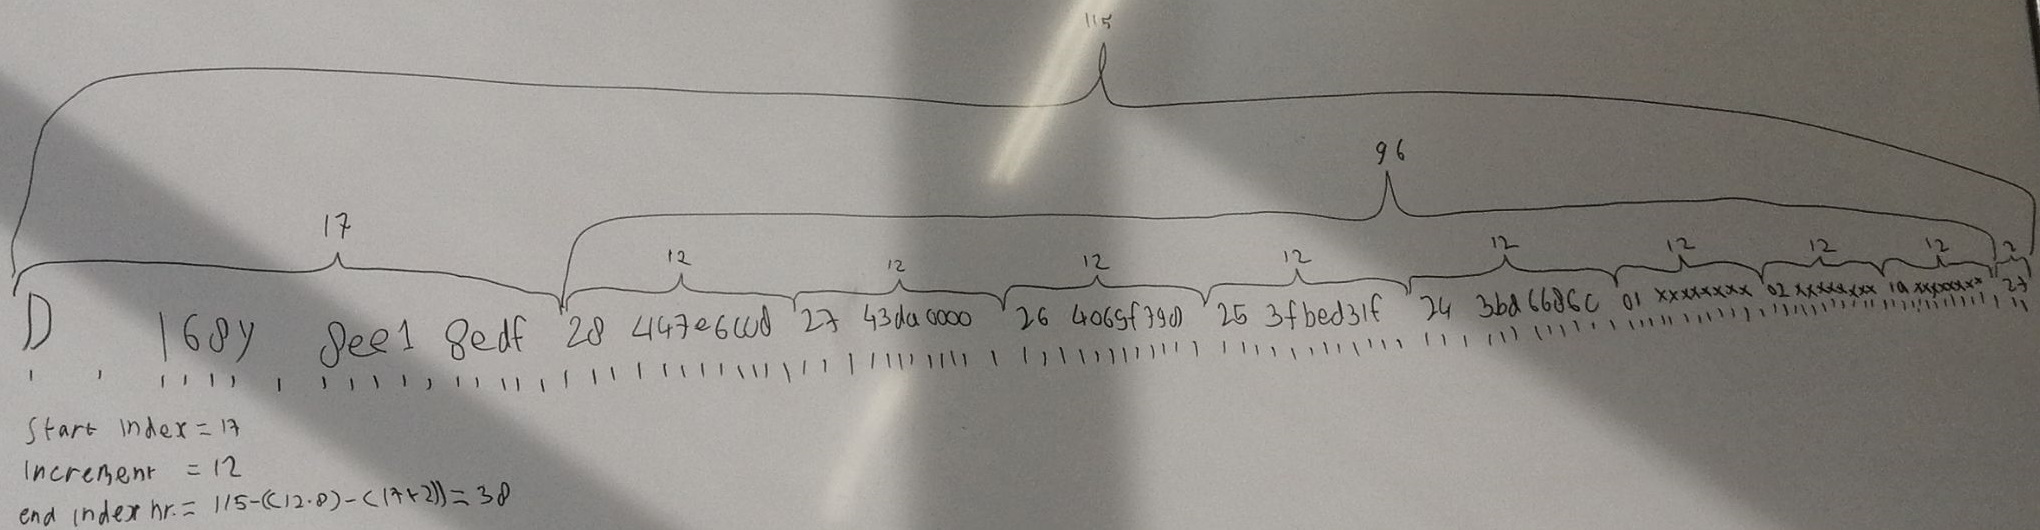 115
96
17
12 12 12 12 12 12 12 12 2
D 168y 8ee1 8edf 28 447e6ccd 27 43da0000 26 4065f39d 25 3fbed31f 24 3bd6686c 01 xxxxxxxx 02 xxxxxxxx 1a xxxxxxxx 27
Start index = 17
Increment = 12
end index nr. = 115-((12.8)-(17+2)) = 38